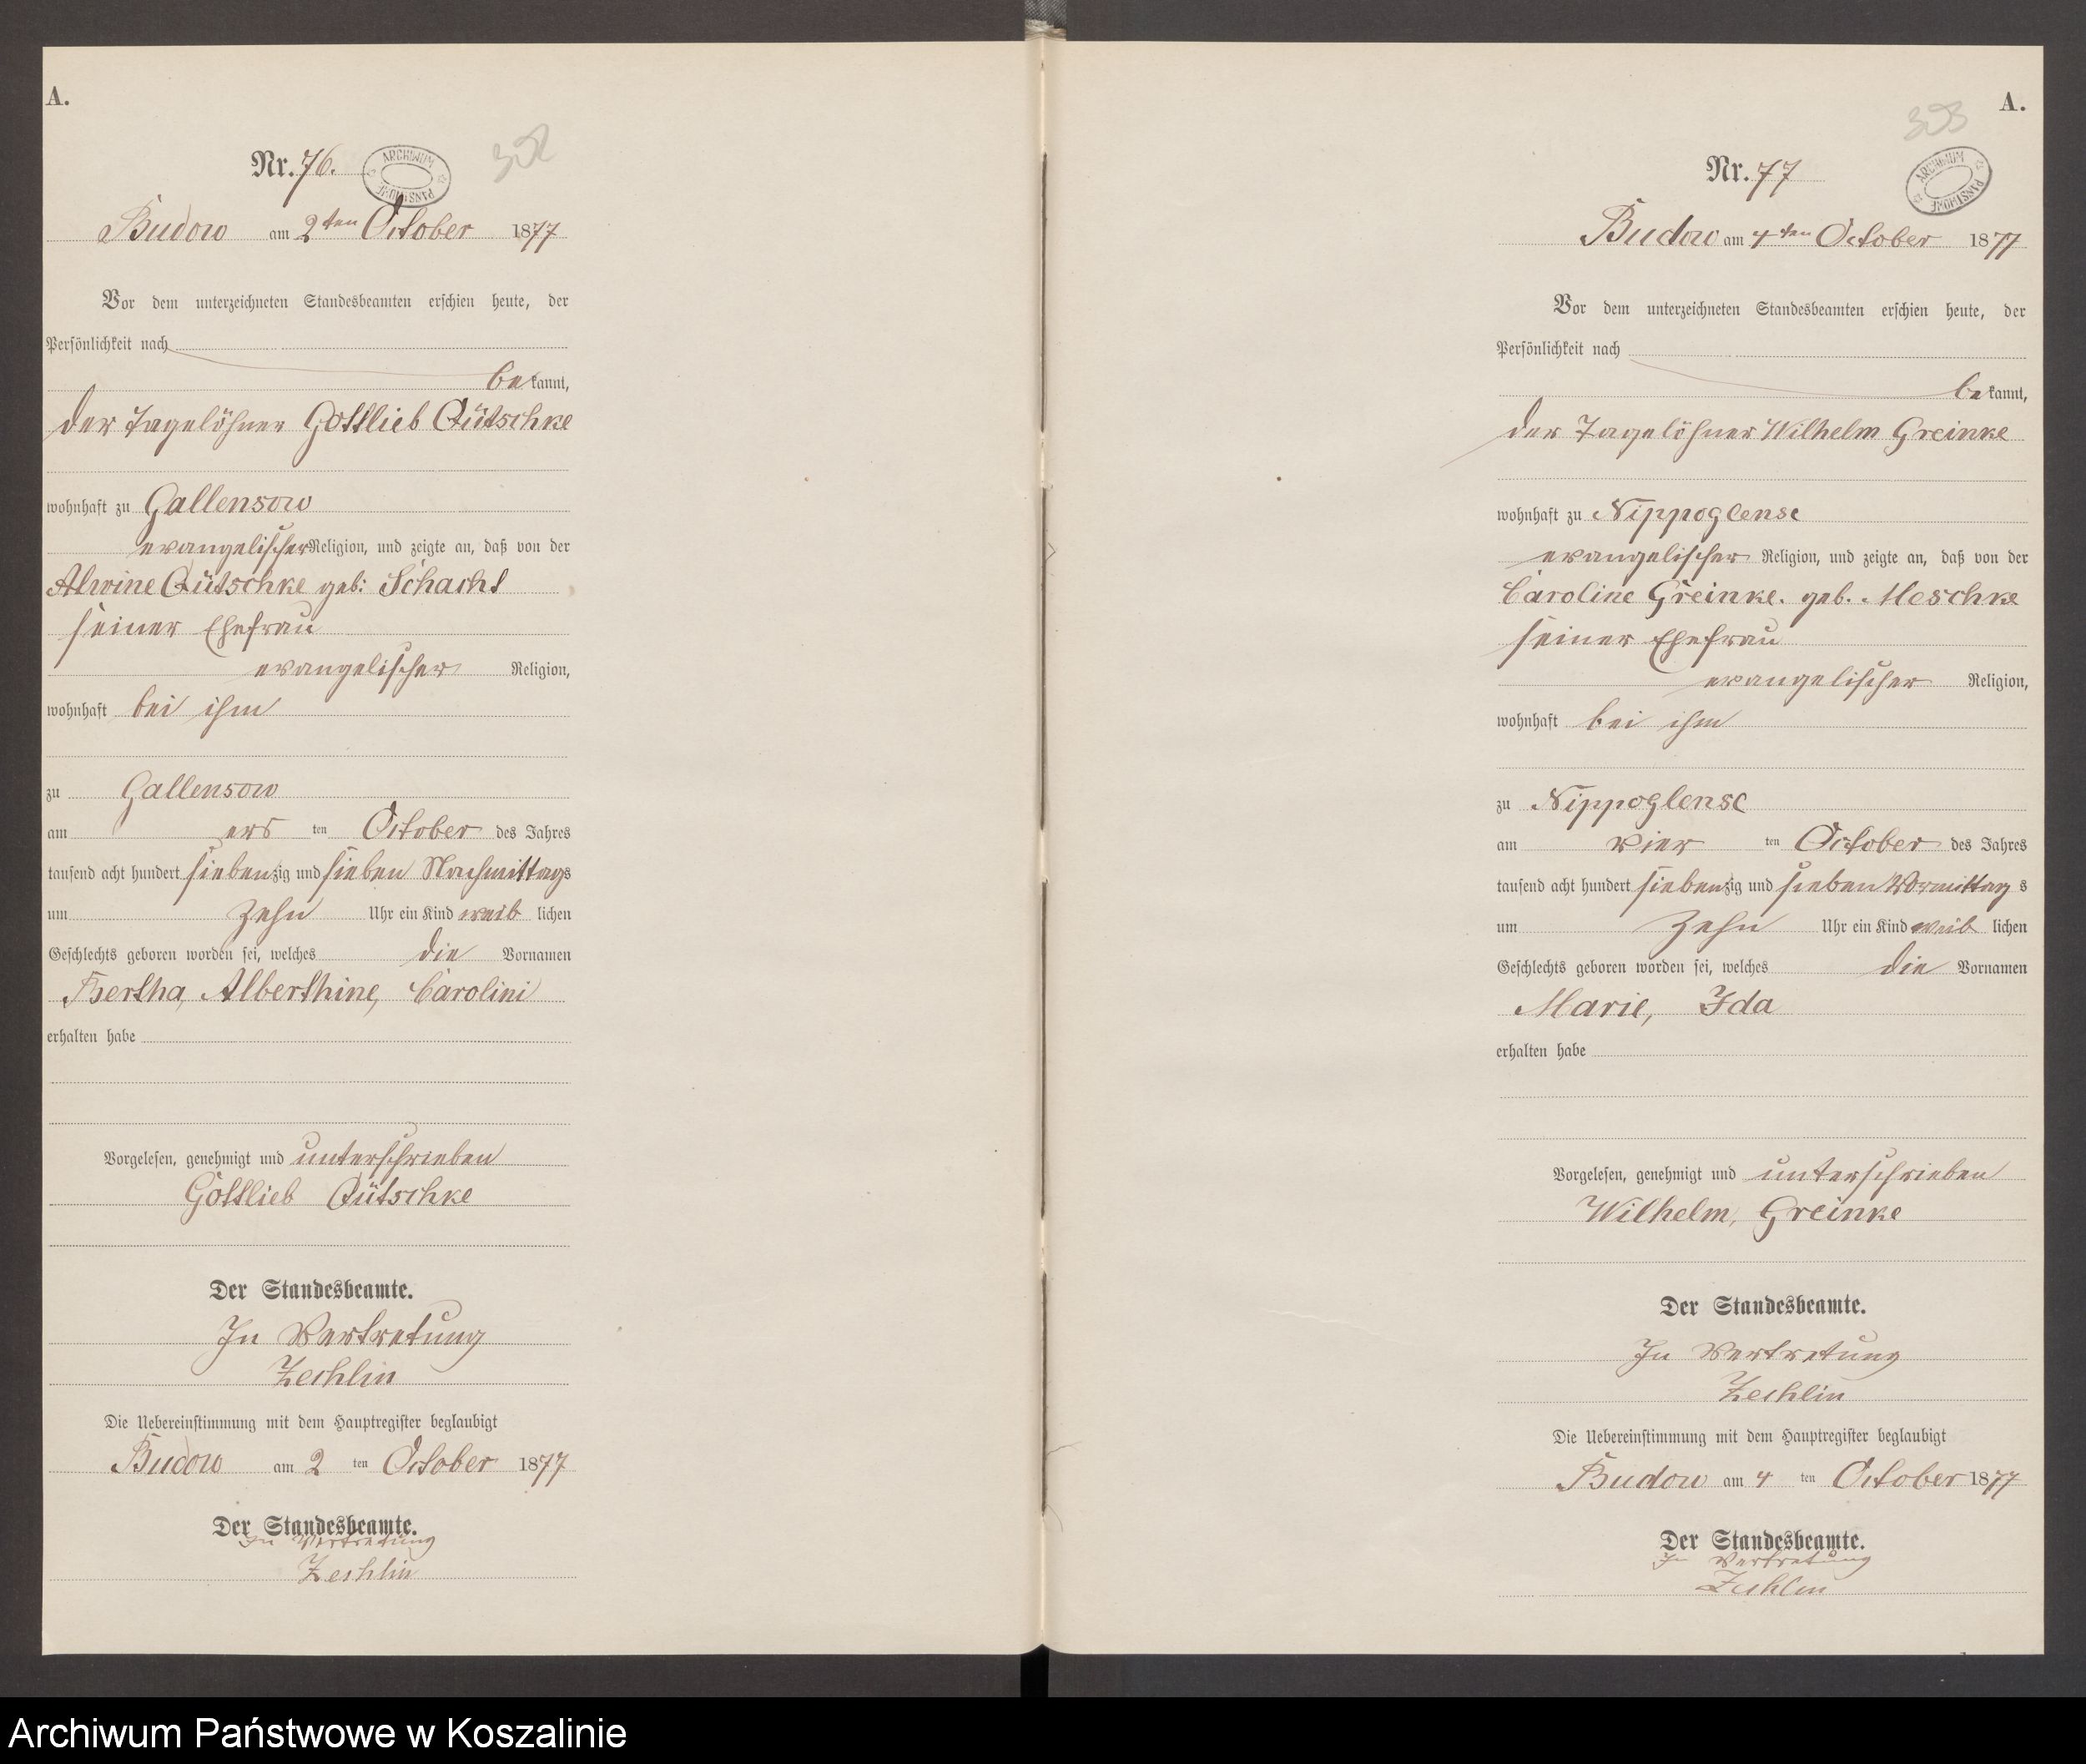 A.
Nr. 76.
ARCHIWUM PAŃSTWOWE
Budow am 2ten October 1877
Vor dem unterzeichneten Standesbeamten erschien heute, der
Persönlichkeit nach
bekannt,
der Tagelöhner Gottlieb Qütschke
wohnhaft zu Gallensow
evangelischer Religion, und zeigte an, daß von der
Alwine Qütschke geb: Schacht
seiner Ehefrau
evangelischer Religion,
wohnhaft bei ihm
zu Gallensow
am ers ten October des Jahres
tausend acht hundert siebenzig und sieben Nachmittags
um zehn Uhr ein Kind weiblichen
Geschlechts geboren worden sei, welches die Vornamen
Bertha, Alberthine, Carolini
erhalten habe
Vorgelesen, genehmigt und unterschrieben
Gottlieb Qütschke
Der Standesbeamte.
In Vertretung
Zechlin
Die Uebereinstimmung mit dem Hauptregister beglaubigt
Budow am 2 ten October 1877
Der Standesbeamte.
In Vertretung
Zechlin
A.
393
Nr. 77
ARCHIWUM PAŃSTWOWE
Budow am 4ten October 1877
Vor dem unterzeichneten Standesbeamten erschien heute, der
Persönlichkeit nach
bekannt,
der Tagelöhner Wilhelm Greinke
wohnhaft zu Nippoglense
evangelischer Religion, und zeigte an, daß von der
Caroline Greinke. geb. Meschke
seiner Ehefrau
evangelischer Religion,
wohnhaft bei ihm
zu Nippoglense
am vier ten October des Jahres
tausend acht hundert siebenzig und sieben Vormittags
um zehn Uhr ein Kind weiblichen
Geschlechts geboren worden sei, welches die Vornamen
Marie, Ida
erhalten habe
Vorgelesen, genehmigt und unterschrieben
Wilhelm, Greinke
Der Standesbeamte.
In Vertretung
Zechlin
Die Uebereinstimmung mit dem Hauptregister beglaubigt
Budow am 4 ten October 1877
Der Standesbeamte.
In Vertretung
Zechlin
Archiwum Państwowe w Koszalinie